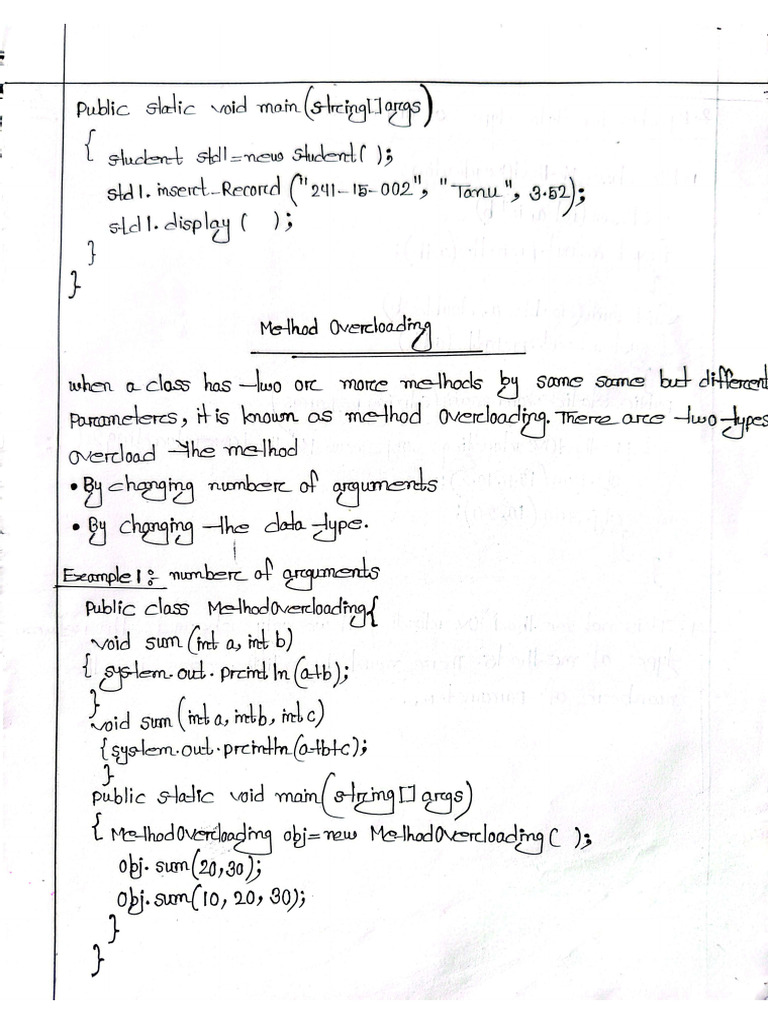 Public static void main(string[] args)
{ student std1=new student( );
std1.insert_Record ("241-15-002", "Tanu", 3.52);
std1.display ( );
}
}
Method Overloading
when a class has two or more methods by same same but different
Parameters, it is known as method overloading. There are two types
overload the method
• By changing number of arguments
• By changing the data type.
Example 1: number of arguments
Public class MethodOverloading{
void sum (int a, int b)
{ system.out.println(a+b);
}
void sum (int a, int b, int c)
{system.out.println(a+b+c);
}
Public static void main(string [] args)
{ MethodOverloading obj=new MethodOverloading( );
obj.sum(20,30);
obj.sum(10, 20, 30);
}
}